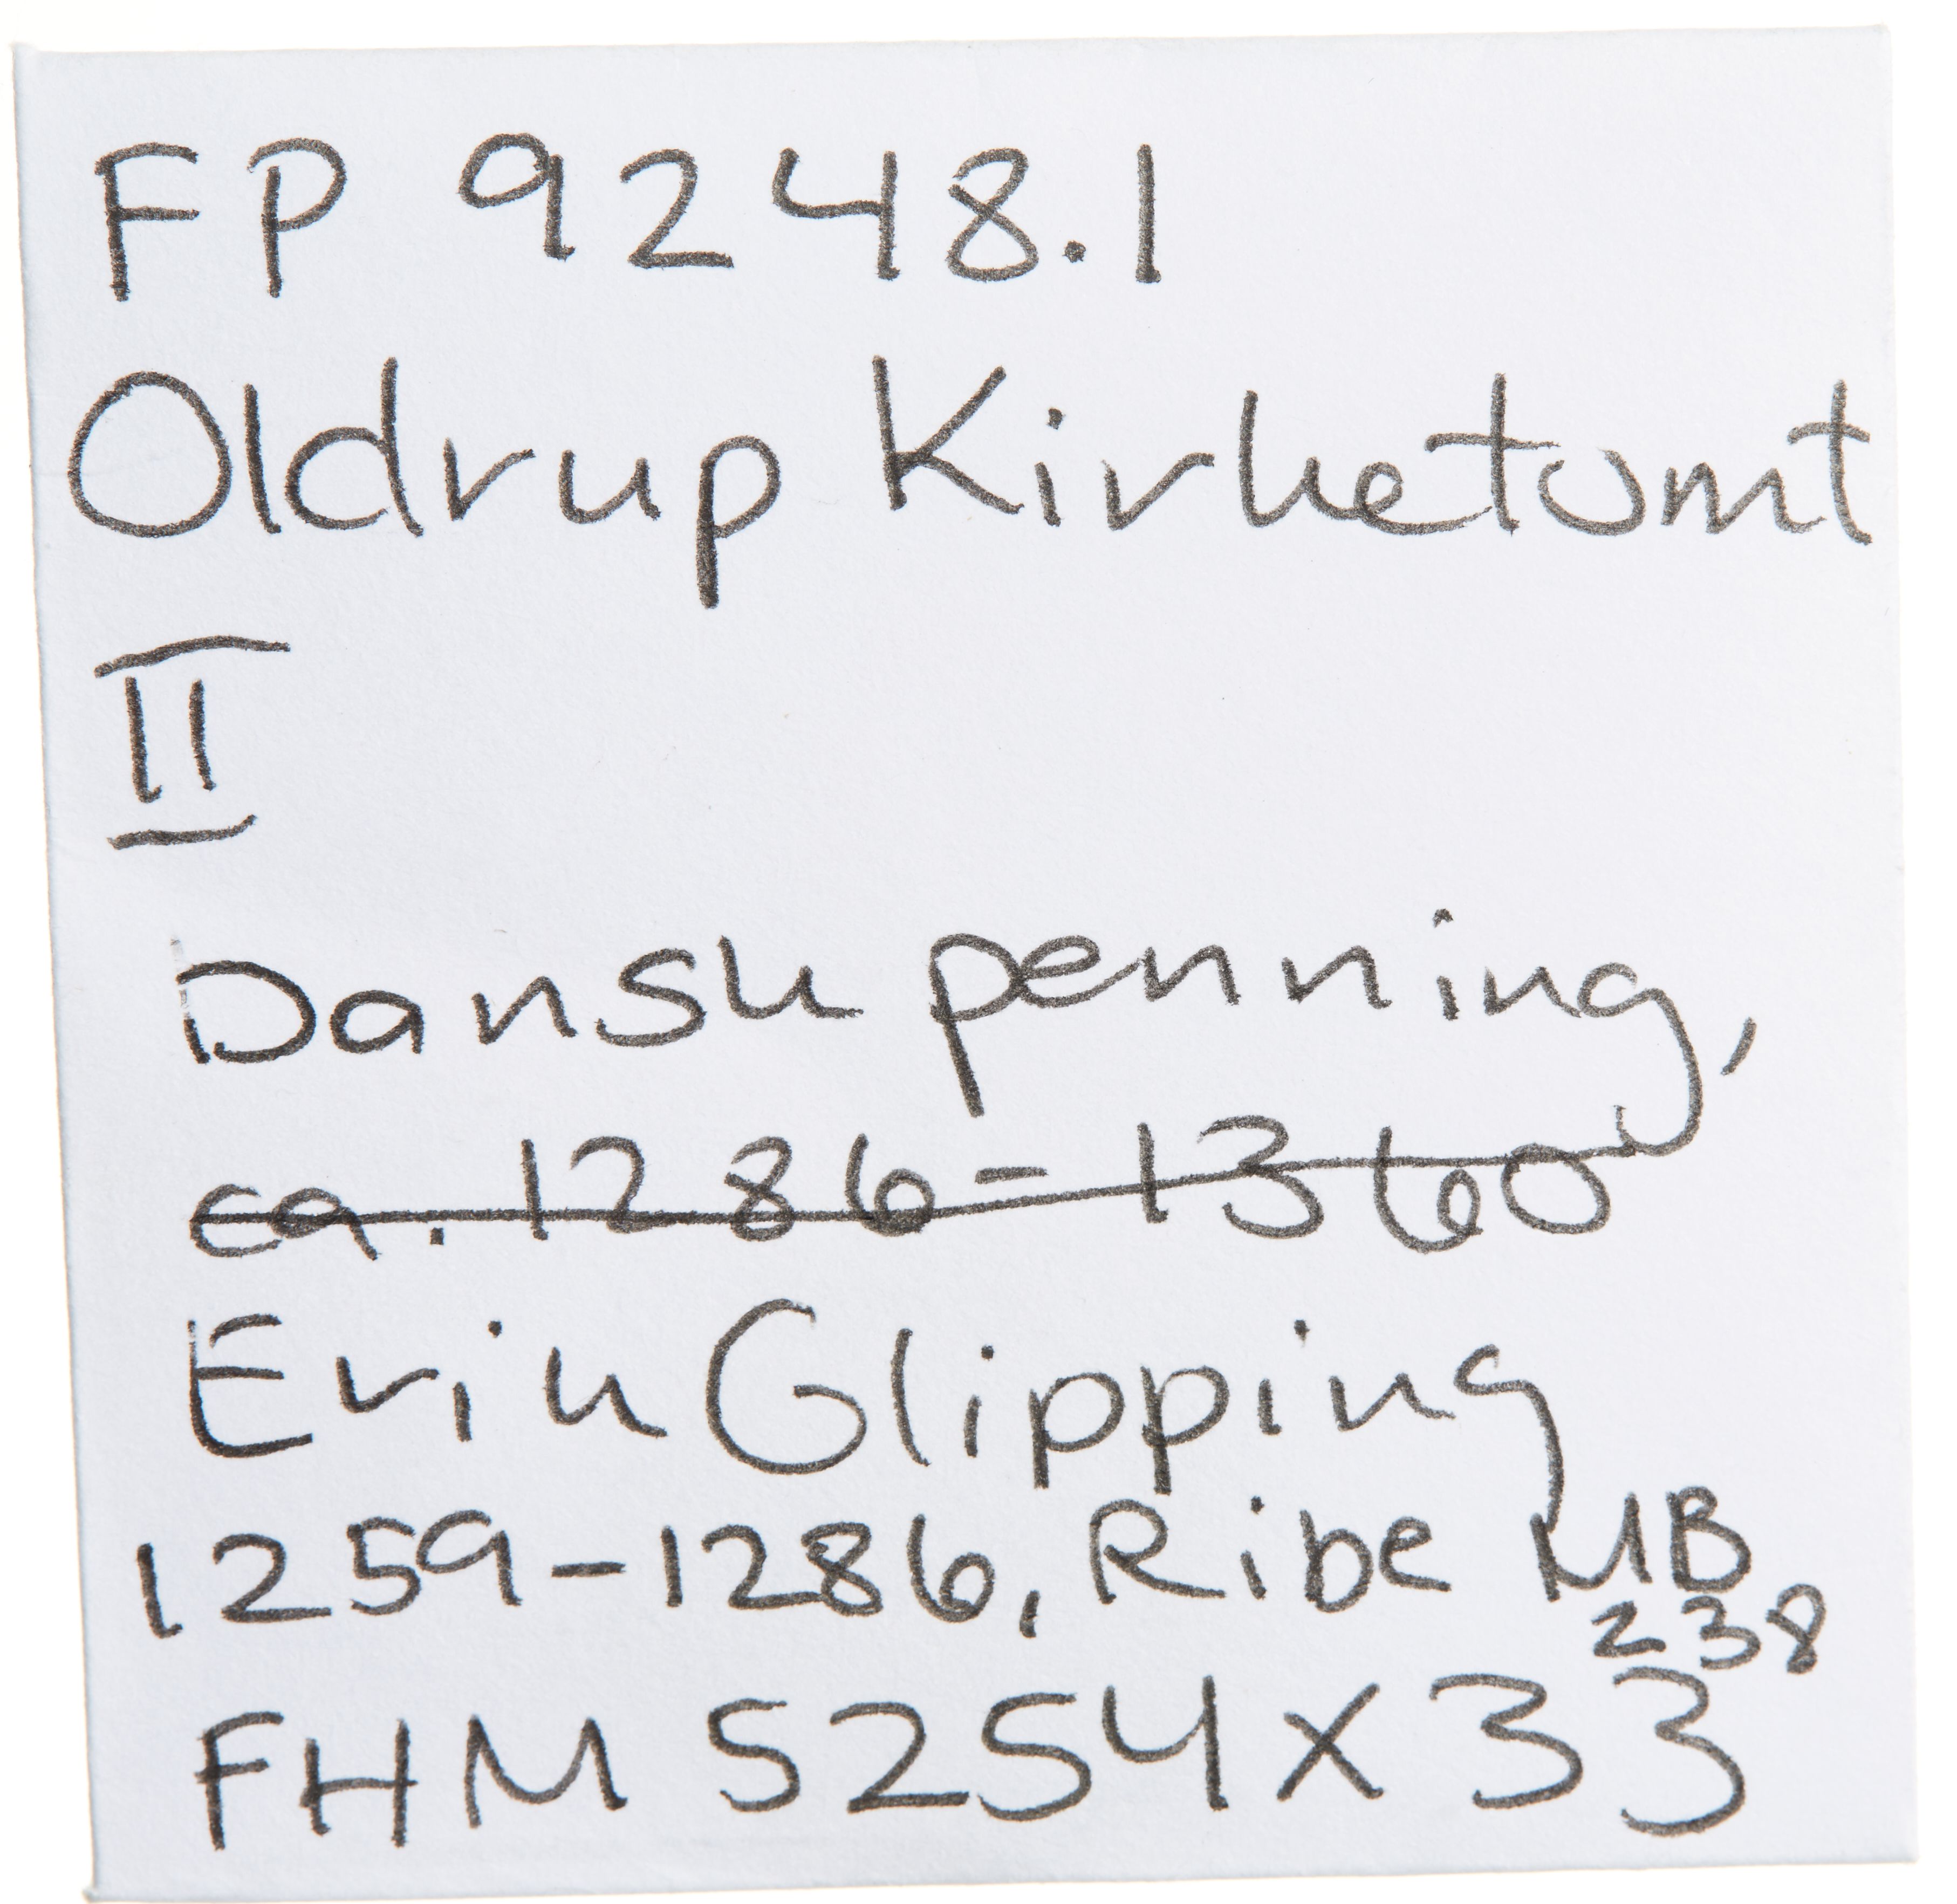 FP 9248.1
Oldrup Kirketomt
II
Dansk penning,
ca. 1286-1360
Erik Glipping
1259-1286, Ribe MB
238
FHM 5254x33